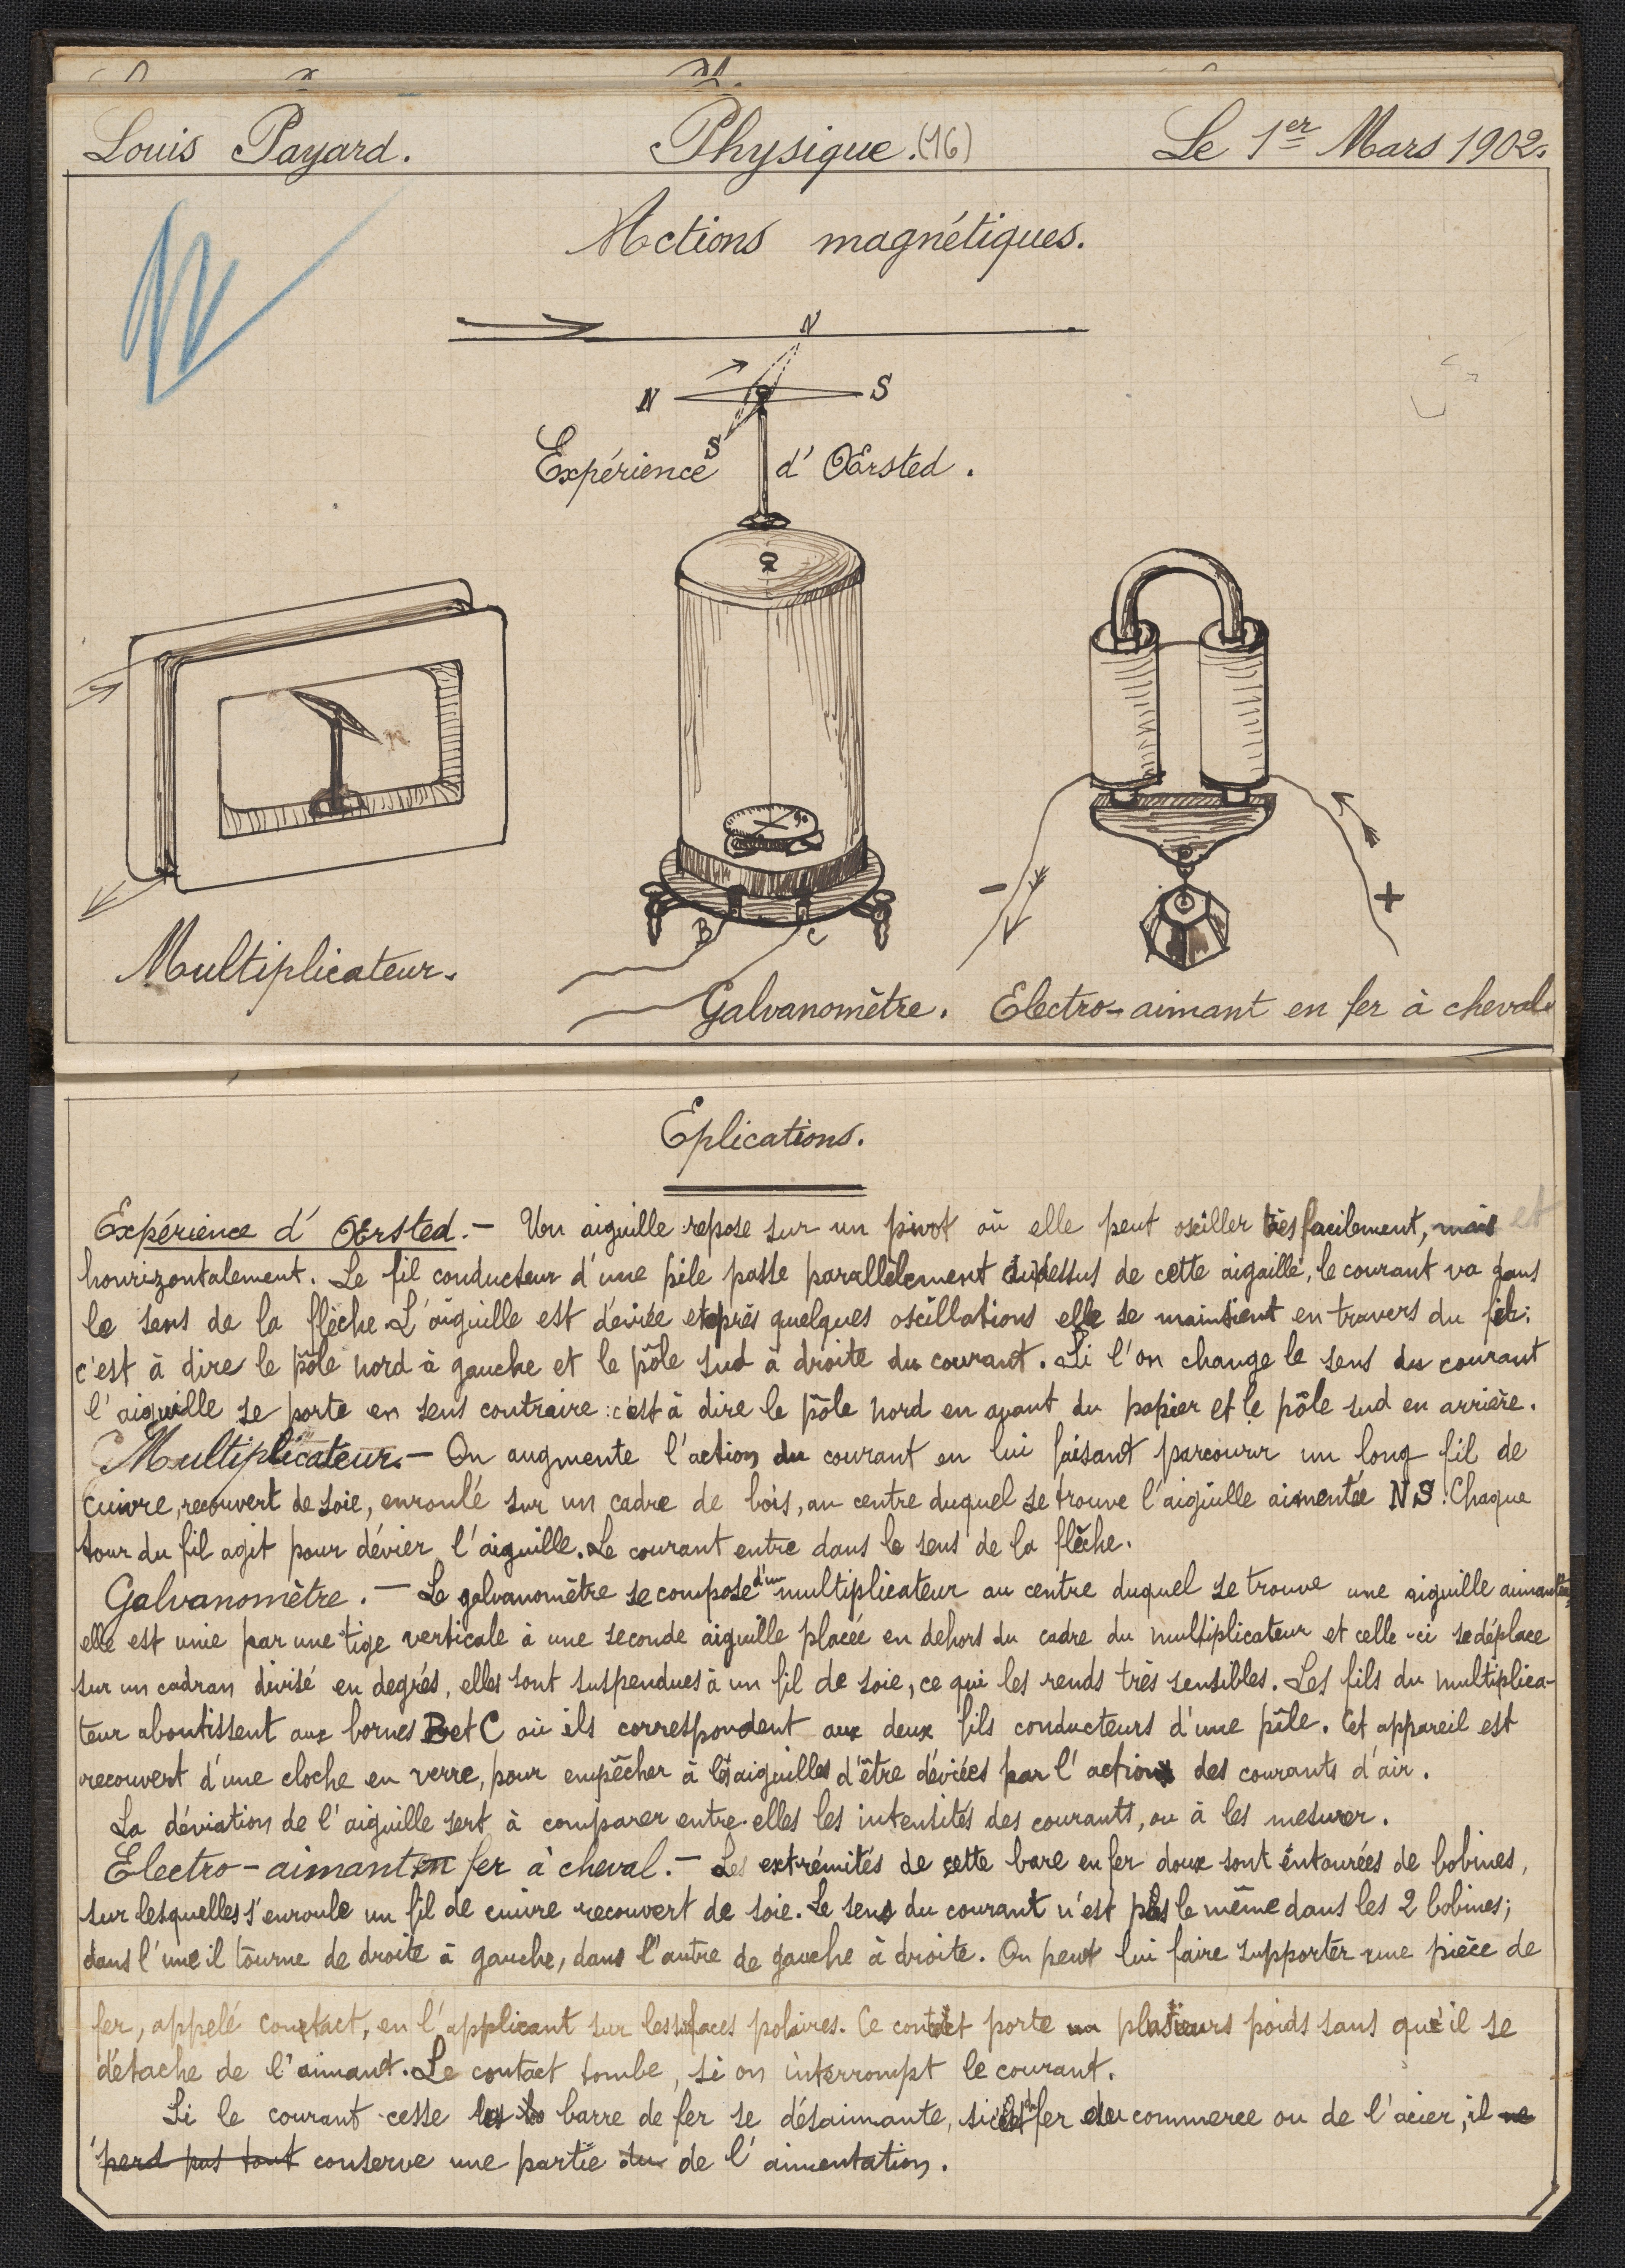 Louis Payard. Physique. (16) Le 1er Mars 1902.
Actions magnétiques.
N
N S
S
Expérience d' Œrsted.
B C
- +
Multiplicateur.
Galvanomètre. Electro-aimant en fer à cheval.
Eplications.
Expérience d' Œrsted. - Un aiguille repose sur un pivot où elle peut osciller très facilement, mais et
hourizontalement. Le fil conducteur d'une pile passe parallèlement audessus de cette aiguille, le courant va dans
le sens de la flèche. L'aiguille est déviée et après quelques oscillations elle se maintient en travers du fil:
c'est à dire le pôle nord à gauche et le pôle sud à droite du courant. Si l'on change le sens du courant
l'aiguille se porte en sens contraire: c'est à dire le pôle nord en avant du papier et le pôle sud en arrière.
Multiplicateur. - On augmente l'action du courant en lui faisant parcourir un long fil de
cuivre, recouvert de soie, enroulé sur un cadre de bois, au centre duquel se trouve l'aiguille aimentée NS. Chaque
tour du fil agit pour dévier l'aiguille. Le courant entre dans le sens de la flèche.
Galvanomètre. - Le galvanomètre se compose d'un multiplicateur au centre duquel se trouve une aiguille aimantée,
elle est unie par une tige verticale à une seconde aiguille placée en dehors du cadre du multiplicateur et celle-ci se déplace
sur un cadran divisé en degrés, elles sont suspendues à un fil de soie, ce qui les rends très sensibles. Les fils du multiplica-
teur aboutissent aux bornes B et C où ils correspondent aux deux fils conducteurs d'une pile. Cet appareil est
recouvert d'une cloche en verre, pour empêcher à les aiguilles d'être déviées par l'action des courants d'air.
La déviation de l'aiguille sert à comparer entre elles les intensités des courants, ou à les mesurer.
Electro-aimant en fer à cheval. - Les extrémités de cette bare en fer doux sont entourées de bobines,
sur lesquelles s'enroule un fil de cuivre recouvert de soie. Le sens du courant n'est pas le même dans les 2 bobines;
dans l'une il tourne de droite à gauche, dans l'autre de gauche à droite. On peut lui faire supporter une pièce de
fer, appelé contact, en l'applicant sur les surfaces polaires. Ce contact porte un plusieurs poids sans qu'il se
détache de l'aimant. Le contact tombe, si on interrompt le courant.
Si le courant cesse la barre de fer se désaimante, si c'est du fer du commerce ou de l'acier, il ne
perd pas tout conserve une partie du de l'aimentation.